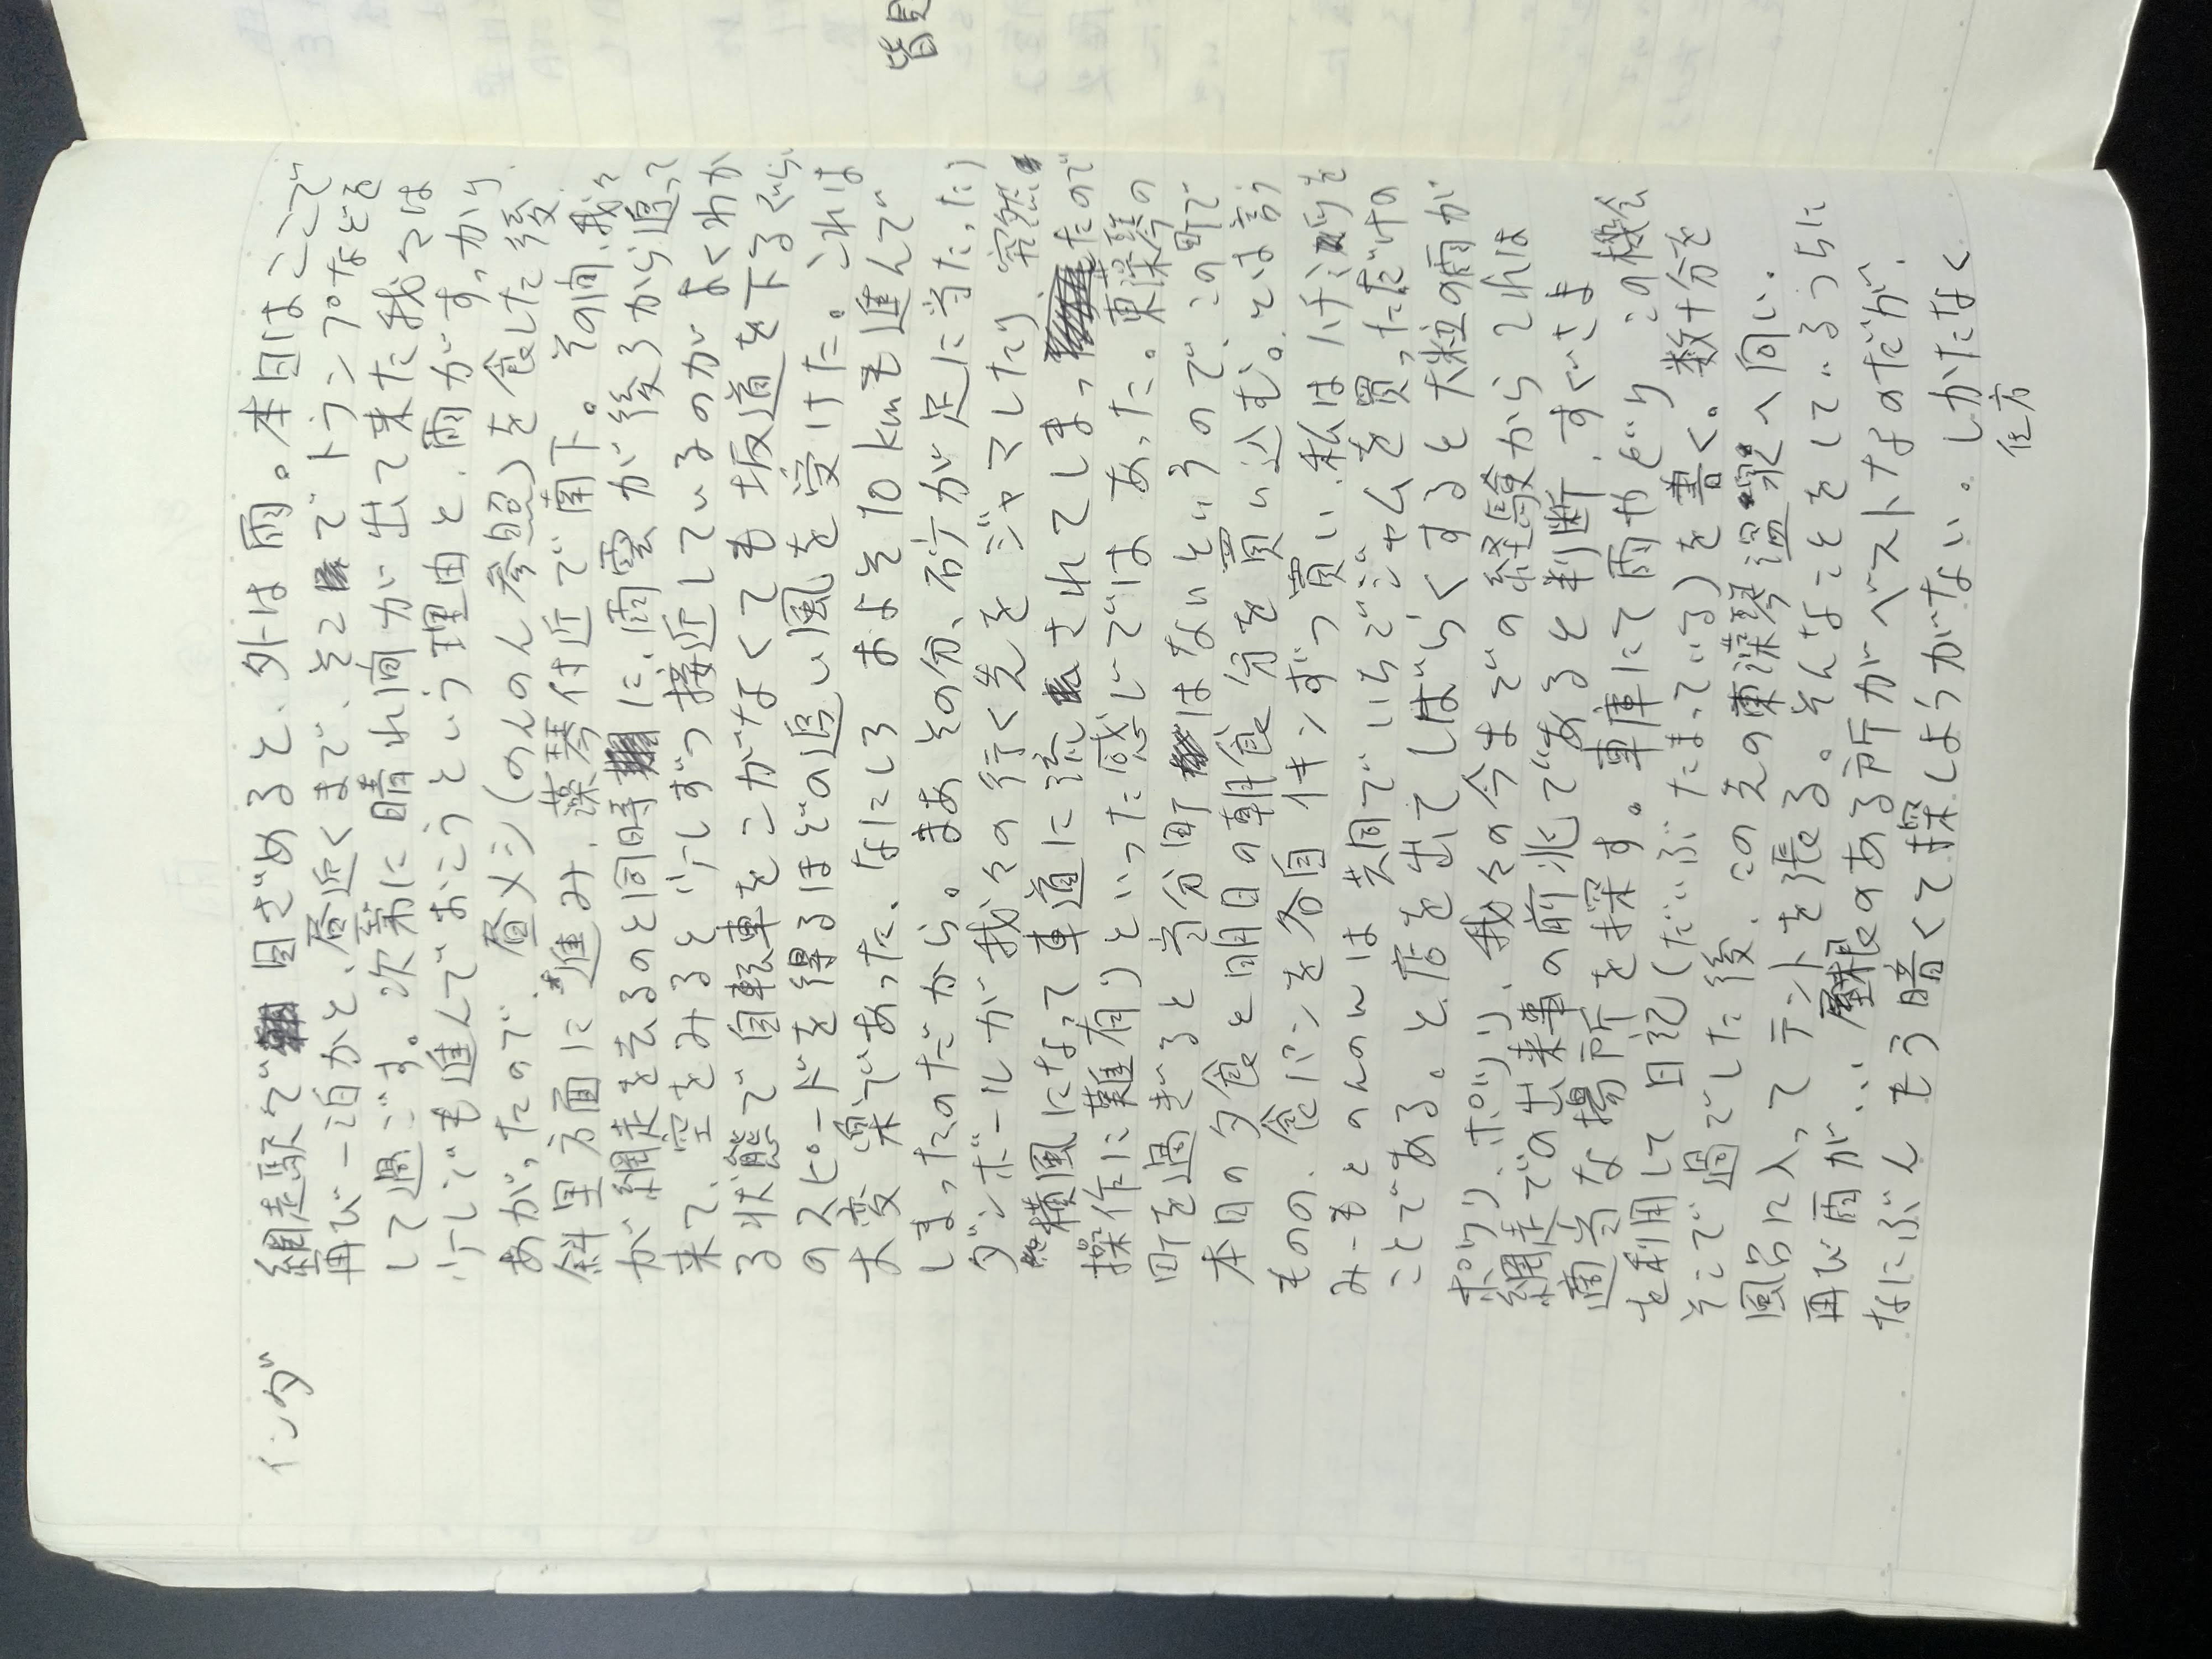 インダ
網走駅で目ざめると、外は雨。本日はここで
再び一泊かと、昼近くまで、そこでトランプなどを
して過ごす。次第に晴れ間がい出て来た我々は
少しでも進んでおこうという理由と、雨がすっかり
あがったので、昼メシ(のんのん参照)を食した後、
斜里方面に進み、藻琴付近で南下。その間、我々
が網走を去るのと同時に、雨雲が後ろから追って
来て、空をみると少しずつ接近しているのがよくわか
る状態で自転車をこがなくても坂道を下るぐらい
のスピードを得るほどの追い風を受けた。これは
大変楽であった、なにしろおよそ10kmも進んで
しまったのだから。まあその分、砂が足に当たったり
ダンボールが我々の行く先をジャマしたり突然
横風になって車道に流されてしまったので
操作に難有り)といった感じではあった。東藻琴の
町を過ぎると当分町はないというので、この町で
本日の夕食と明日の朝食分を買い込む。とは言う
ものの、食パンを各自1キンずつ買い、私はハチミツを
みーもとのんのんは共同でいちごジャムを買っただけの
ことである。と、店を出てしばらくすると大粒の雨が
ポツリ、ポツリ、我々の今までの経験からこれは
網走での出来事の前兆であると判断、すぐさま
適当な場所を探す。車庫にて雨やどり この機会
を利用して日記(だいぶたまっている)を書く。数十分を
そこで過ごした後、この先の東藻琴温泉へ向い、
風呂に入ってテントを張る。そんなことをしているうちに
再び雨が… 屋根のある所がベストなのだが、
なにぶんもう暗くて探しようがない。しかたなく
仕方
皆